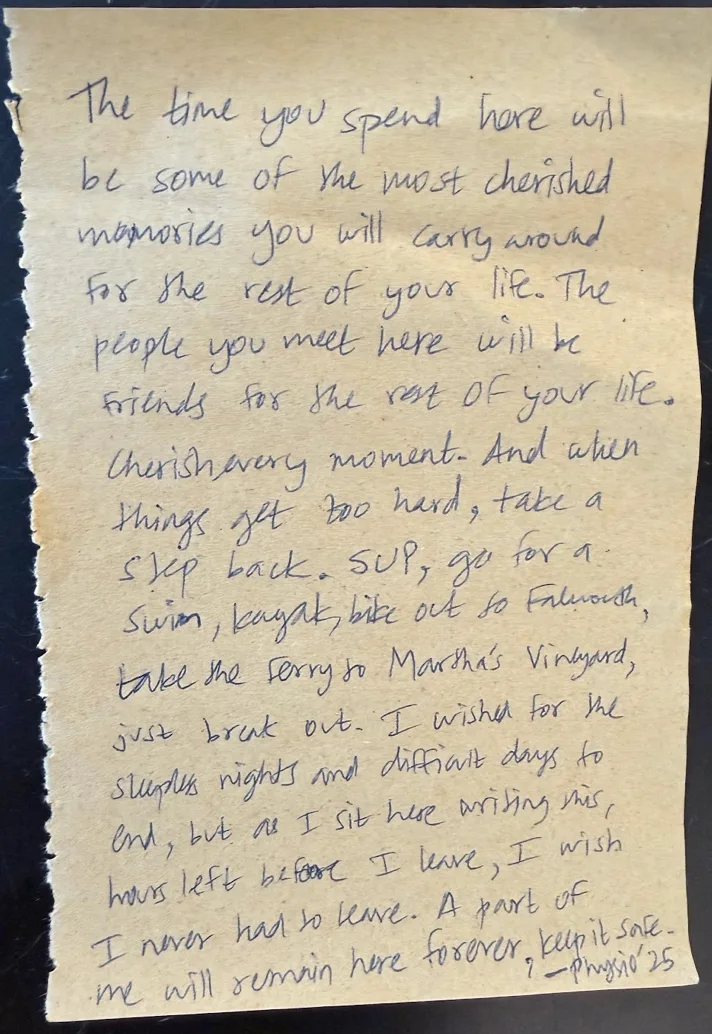 The time you spend here will
be some of the most cherished
memories you will carry around
for the rest of your life. The
people you meet here will be
friends for the rest of your life.
Cherish every moment. And when
things get too hard, take a
step back. SUP, go for a
swim, kayak, bike out to Falmouth,
take the ferry to Martha's Vineyard,
just break out. I wished for the
sleepless nights and difficult days to
end, but as I sit here writing this,
hours left before I leave, I wish
I never had to leave. A part of
me will remain here forever, keep it safe.
—Physio '25